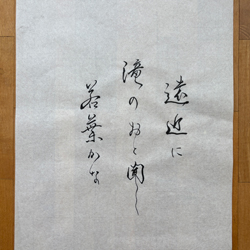 遠近に
滝の音聞く
若葉かな